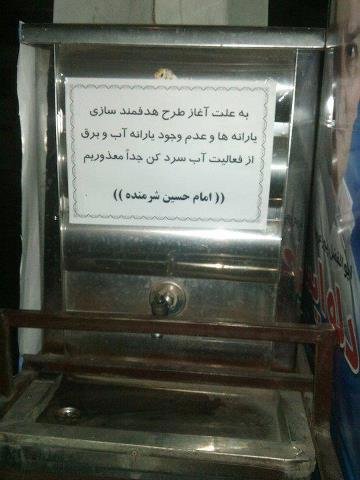 به علت آغاز طرح هدفمند سازی
یارانه ها و عدم وجود یارانه آب و برق
از فعالیت آب سرد کن جداً معذوریم
(( امام حسین شرمنده ))